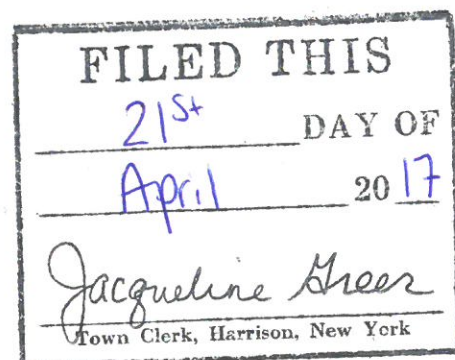 FILED THIS
21st DAY OF
April 20 17
Jacqueline Greer
Town Clerk, Harrison, New York